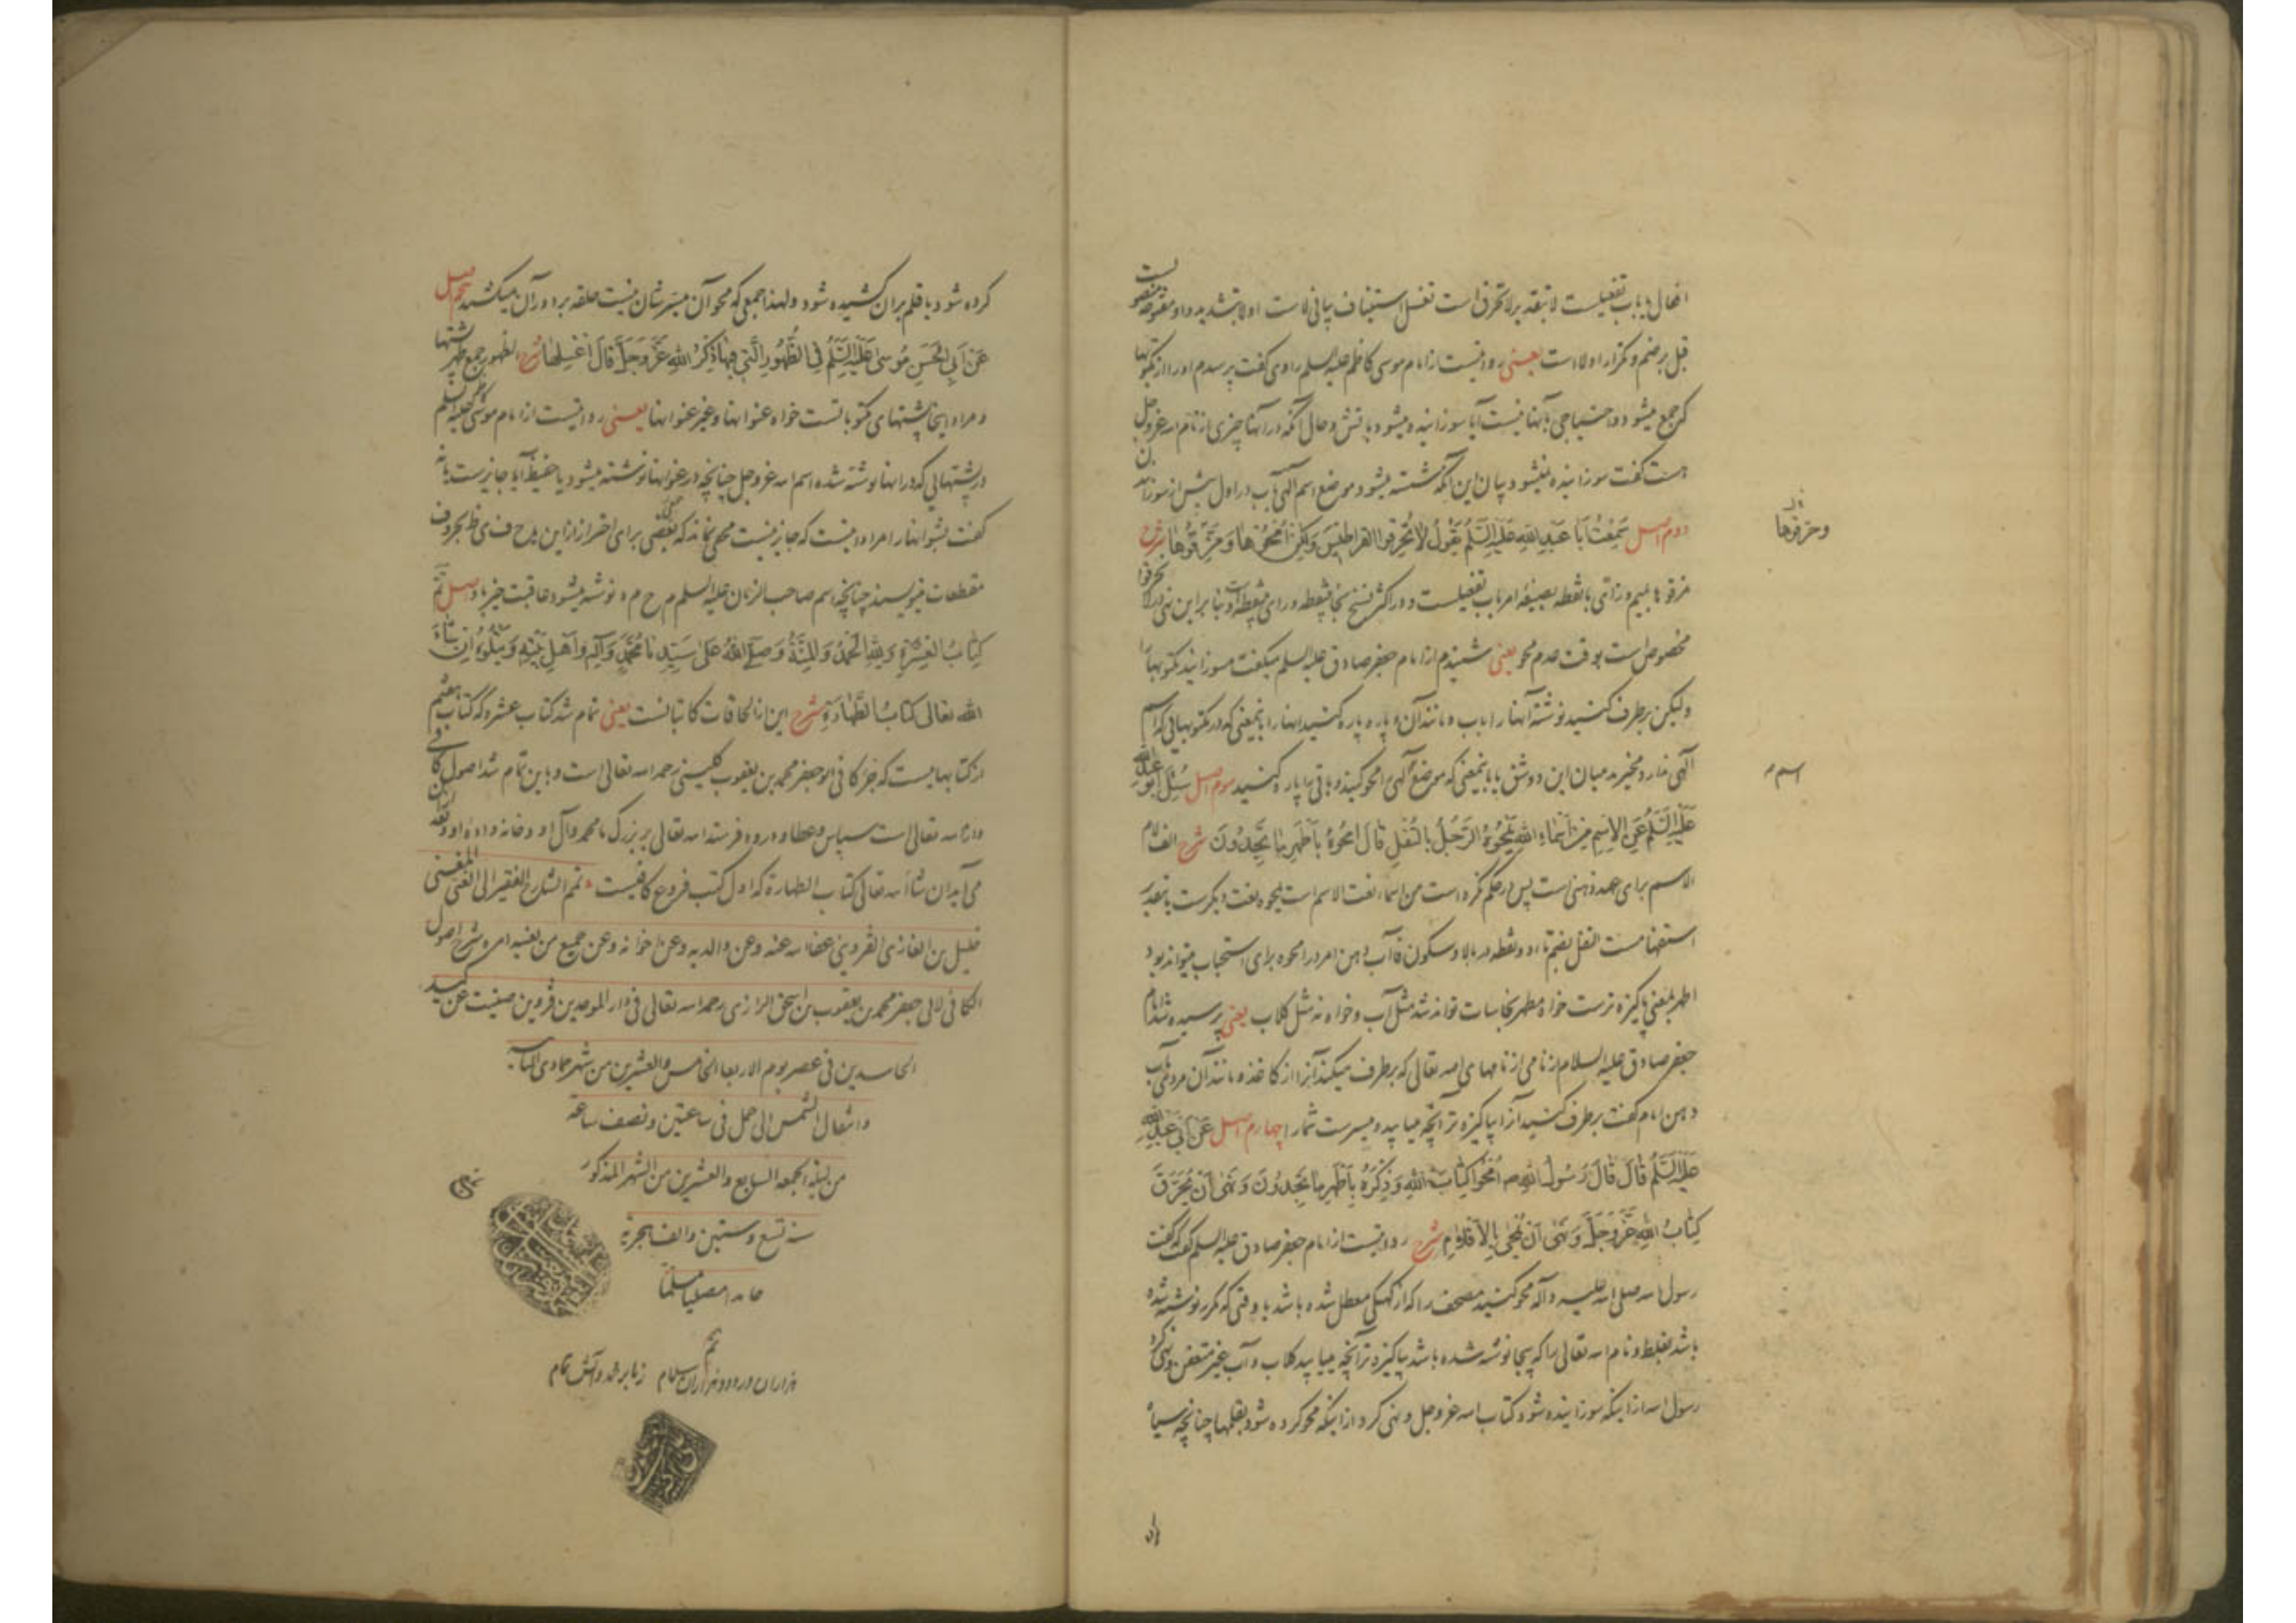 افعال یا باب تفعیلست لا تبقه برلا تحرق است تغسل استیناف بیانی لاست اولا بتشدید واو مفتوحه منصوبست
قبل برضم و مکرر اولا است یعنی روایتست از امام موسی کاظم علیه السلم راوی گفت پرسیدم او را از مکتوبها
که جمع میشود و احتیاجی بآنها نیست آیا سوزانیده میشود بآتش و حال آنکه در آنها چیزی از نام اله عزوجل
هست گفت سوزانیده نمیشود بیان این آنکه شسته میشود موضع اسم الهی بآب در اول پیش از سوزانیدن
دوم اصل سَمِعْتُ اَبَا عَبْدِ اللهِ عَلَیْهِ السَّلَمُ یَقُولُ لَا تُحْرِقُوا الْقَرَاطِیسَ وَلٰکِنِ امْحُوهَا وَ حَرِّقُوهَا شرح
وخرقوها
مزقوها بمیم و زای با نقطه بصیغه امر باب تفعیلست و در اکثر نسخ بخا بنقطه و رای بینقطه است و بنا براین نهی در لا تحرقوا
مخصوص است بوقت عدم محو یعنی شنیدم از امام جعفر صادق علیه السلم میگفت مسوزانید مکتوبها را
ولیکن برطرف کنید نوشته آنها را بآب و مانند آن و پاره پاره کنید آنها را باینمعنی که در مکتوبهائی که اسم
الهی ندارد مخیرید میان این دو شق یا باینمعنی که موضع اسم الهی را محو کنید و باقی را پاره کنید سوم اصل سُئِلَ اَبُو عَبْدِ اللهِ
اسم
عَلَیْهِ السَّلَمُ عَنِ الْاِسْمِ مِنْ اَسْمَاءِ اللهِ یَمْحُوهُ الرَّجُلُ بِالتُّفْلِ قَالَ امْحُوهُ بِاَطْهَرِ مَا تَجِدُونَ شرح الف لام
الاسم برای عهد ذهنی است پس در حکم نکره است من اسماء نعت الاسم است یمحوه نعت دیگرست یا بتقدیر
استفهامست التفل بضم تاء دو نقطه در بالا و سکون فا آب دهن امر در امحوه برای استحباب میتواند بود
اطهر بمعنی پاکیزه ترست خواه مطهر نجاسات تواند شد مثل آب و خواه نه مثل گلاب یعنی پرسیده شد امام
جعفر صادق علیه السلام از نامی از نامهای اله تعالی که برطرف میکند آنرا از کاغذ و مانند آن مردی بآب
دهن امام گفت برطرف کنید آنرا پاکیزه تر آنچه میابید و میسرست شما را چهارم اصل عَنْ اَبِی عَبْدِ اللهِ
عَلَیْهِ السَّلَمُ قَالَ قَالَ رَسُولُ اللهِ ص امْحُوا کِتَابَ اللهِ وَ ذِکْرَهُ بِاَطْهَرِ مَا تَجِدُونَ وَ نَهَی اَنْ یُحْرَقَ
کِتَابُ اللهِ عَزَّ وَجَلَّ وَ نَهَی اَنْ یُمْحَی بِالْاَقْلَامِ شرح روایتست از امام جعفر صادق علیه السلم که گفت که گفت
رسول اله صلی اله علیه و آله محو کنید مصحف را که از کهنگی معطل شده باشد یا وقتی که مکرر نوشته شده
باشد بغلط و نام اله تعالی را که بیجا نوشته شده باشد پاکیزه تر آنچه میابید گلاب و آب غیر متعفن و نهی کرد
رسول اله از اینکه سوزانیده شود کتاب اله عزوجل و نهی کرد از اینکه محو کرده شود بقلمها چنانچه سیاه
کرده شود یا قلم بران کشیده شود و لهذا جمعی که محو آن میسر شان نیست حلقه بر دور آن میکشند پنجم اصل
عَنْ اَبِی الْحَسَنِ مُوسَی عَلَیْهِ السَّلَمُ فِی الظُّهُورِ الَّتِی فِیهَا ذِکْرُ اللهِ عَزَّ وَجَلَّ قَالَ اغْسِلْهَا شرح الظهور جمع ظهر پشتها
و مراد اینجا پشتهای مکتوباتست خواه عنوانها و غیر عنوانها یعنی روایتست از امام موسی کاظم علیه السلم
در پشتهائی که در انها نوشته شده اسم اله عزوجل چنانچه در عنوانها نوشته میشود یا حفیظ آیا جایزست یا نه
گفت بشو انها را مراد اینست که جایز نیست مخفی نماند که بعضی برای احتراز از این ی ا ح ف ی ظ بحروف
مقطعات مینویسند چنانچه اسم صاحب الزمان علیه السلم م ح م د نوشته میشود عاقبت خیر باد اصل تَمَّ
کِتَابُ الْعِشْرَةِ وَ لِلّٰهِ الْحَمْدُ وَ الْمِنَّةُ وَ صَلَّی اللهُ عَلَی سَیِّدِنَا مُحَمَّدٍ وَ آلِهِ وَ اَهْلِ بَیْتِهِ وَ یَتْلُوهُ اِنْ شَاءَ
الله تَعَالَی کِتَابُ الطَّهَارَةِ شرح این از الحاقات کاتبانست یعنی تمام شد کتاب عشره که کتاب هشتم
از کتابهاییست که جزء کافی ابو جعفر محمد بن یعقوب کلینی رحمه اله تعالی است و باین تمام شد اصول کافی
و از اله تعالی است سپاس و عطا و درود فرستد اله تعالی بر بزرگ ما محمد و آل او و خانواده او و بعد ازین
می آید ان شاء اله تعالی کتاب الطهارة که اول کتب فروع کافیست تمم الشارح الفقیر الی الغنی المغنی
خلیل بن الغازی القزوینی عفا اله عنه و عن والدیه و عن اخوانه و عن جمیع من یعنیه امره شرح اصول
الکافی لابی جعفر محمد بن یعقوب بن اسحق الرازی رحمه اله تعالی فی دار الموحدین قزوین صینت عن کید
الحاسدین فی عصر یوم الاربعا الخامس والعشرین من شهر جمادی الثانیه
وانتقال الشمس الی حمل فی ساعتین و نصف ساعة
من لیلة الجمعه السابع والعشرین من الشهر المذکور
سنه تسع وستین والف هجریة
حامدا مصلیا مسلما
تم
هزاران درود و هزاران سلام ز ما بر محمد و آلش تمام